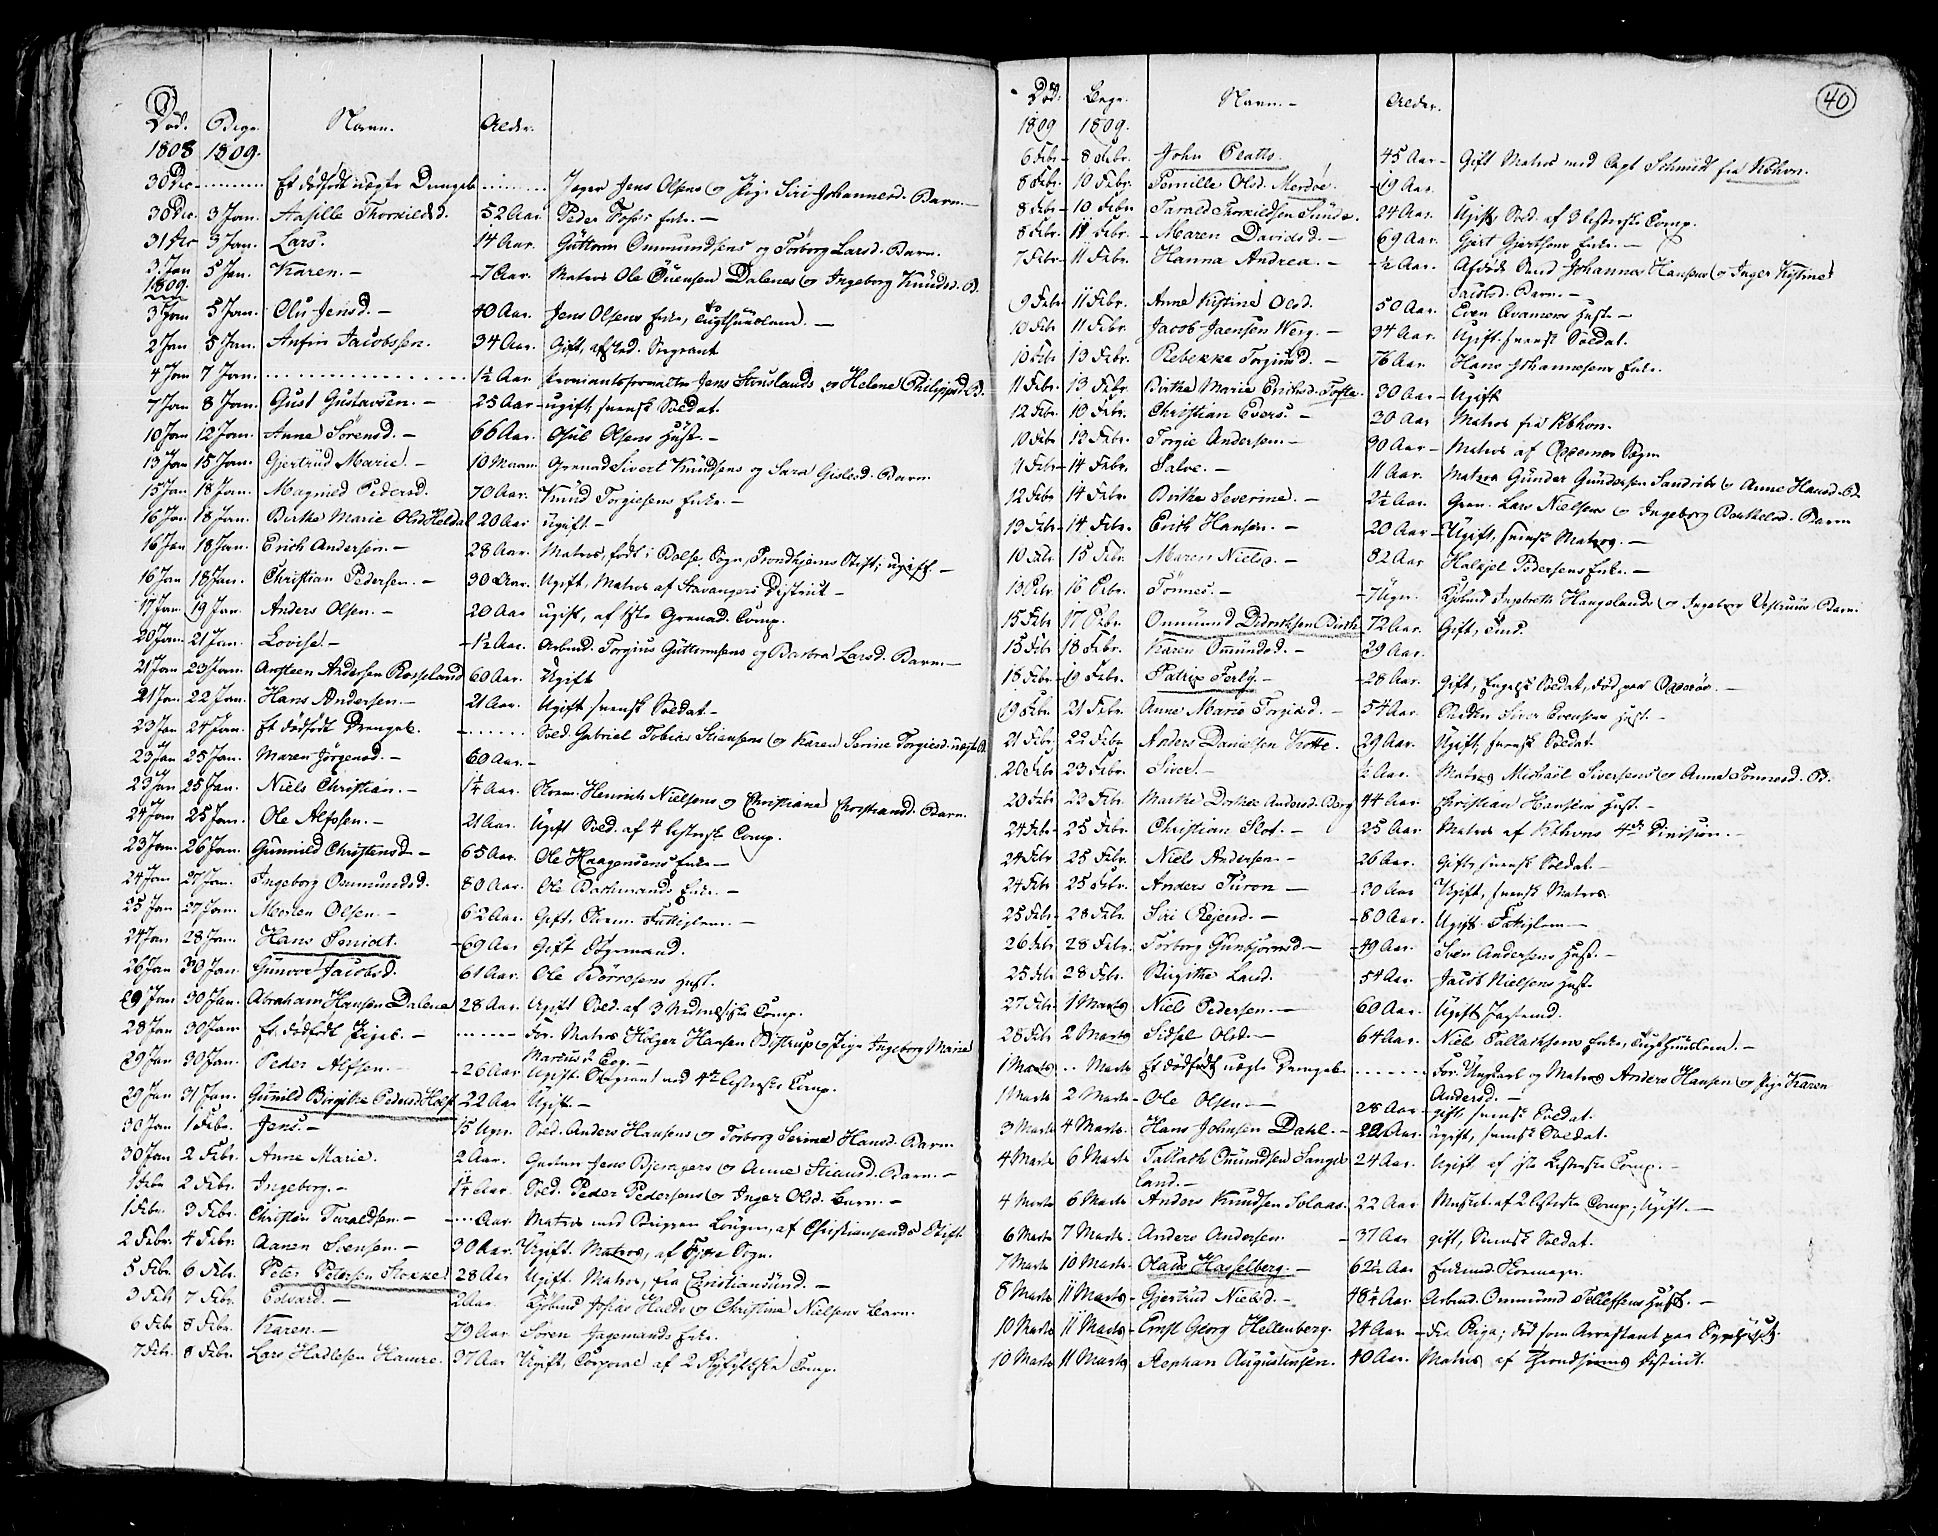 Død. Begr. Navn. Alder.
1808 1809.
30 Dec ......... Et dødfødt uægte Drengeb. ......... Jæger Jens Olsens og Pige Siri Johannesd. Barn.
30 Dec. 3 Jan. Aasille Thorkildsd. 52 Aar Peder Foss's Enke.
31 Dec 3 Jan. Lars. 14 Aar. Guttorm Ommundsens og Torborg Larsd. Barn.
3. Jan 5 Jan. Karen. 7 Aar. Matros Ole Evensen Dalenes og Ingeborg Knudsd. B.
1809.
3 Jan 5 Jan. Olu Jensd. 40 Aar. Jens Olsens Enke,
2 Jan 5 Jan. Anfin Jacobssen. 34 Aar. Gift, afsked. Sergeant
4 Jan 7 Jan. .................. 1½ Aar. Proviantsforvalter Jens Stenslands og Helene Philippsd. B.
7 Jan 8 Jan. Gust Gustavsen. 25 Aar ugift, svensk Soldat.
10 Jan 12 Jan. Anne Sørensd. 66 Aar. Osul Olsens Hust.
13 Jan 15 Jan. Gjertrud Marie. 10 Maan. Grenad. Sivert Knudsens og Sara Gislesd. Barn.
15 Jan 18 Jan. Magnild Pedersd. 70 Aar. Knud Torgiesens Enke.
16 Jan 18 Jan. Birthe Marie Olsd. Heldal 20 Aar ugift
16 Jan 18 Jan. Erich Andersen. 28 Aar. Matros, født i Sogn, Trondhjems Stift; ugift.
16 Jan 18 Jan. Christian Pedersen. 30 Aar. Ugift, Matros af Stavangers District
17 Jan 19 Jan. Anders Olsen. 20 Aar ugift, af Grenad. Comp.
20 Jan 21 Jan. Lovise. 1½ Aar. Arbmd. Torgius Guttormsens og Barbra Larsd. Barn.
21 Jan 23 Jan. Andersen Rosseland 60 Aar. Ugift
21 Jan 22 Jan. Hans Andersen. 21 Aar. Ugift svensk Soldat.
23 Jan 24 Jan. Et dødfødt Drengeb. ....... Sold. Gabriel Tobias Stiansens og Karen Serine Torgiesd. uægte B.
23 Jan 25 Jan. Maren Jørgensd. 60 Aar.
23 Jan 25 Jan. Niels Christian. 1¼ Aar. Henrich Nielsens og Christiane Christiansd. Barn.
24 Jan 25 Jan. Ole Alfssen. 21 Aar. Ugift Sold. af 4 Listerske Comp.
23 Jan. 26 Jan. Gunnild Christensd. 65 Aar. Ole Haagensens Enke.
24 Jan 27 Jan. Ingeborg Ommundsd. 80 Aar. Ole Enke.
25 Jan 27 Jan. Morten Olsen. 62 Aar. Gift. Fattiglem.
24 Jan 28 Jan. Hans Smidt. 69 Aar Gift Borgermand.
26 Jan 30 Jan. Gunvor Jacobsd. 61 Aar. Ole Børresens Hust.
29 Jan 30 Jan. Abraham Hansen Dalene 28 Aar. Ugift Sold. af 3 Comp.
28 Jan 30 Jan Et dødfødt Pigeb. ....... For. Matros Holger Hansen Bistrup og Pige Ingeborg Marie
29 Jan 30 Jan. Peder Alfsen. 26 Aar Ugift. ved 4de Listerske Comp.
29 Jan 31 Jan. Gunild Birgitte Pedersd. Holst 22 Aar Ugift.
30 Jan 1 Febr. Jens. 15 Uger. Sold. Anders Hansens og Torborg Serine Hansd. Barn.
30 Jan 2 Febr. Anne Marie. 2 Aar. Jens Bjerngers og Anne Stiansd. Barn.
1 Febr 2 Febr. Ingeborg. 1¼ Aar. Sold. Peder Pedersens og Inger Olsd. Barn.
1 Febr. 3 Febr. Christen Taraldsen. ... Aar. Matros med Briggen Lougen, af Christiansands Stift
2 Febr. 4 Febr. Aanen Svensen. 30 Aar. Ugift. Matros, af Sogn.
5 Febr. 6 Febr. Peter Petersen Stokke 28 Aar Ugift. Matros, fra Christiansund.
3 Febr 7 Febr. Edvard. 2 Aar. Kjøbmd Josias og Christine Nielsens Barn.
6 Febr 8 Febr. Karen. 79 Aar. Søren Jagemands Enke.
7 Febr. 8 Febr. Lars Hadlesen Hamre. 37 Aar Ugift, Corporal af 2 Ryfylkske Comp.
40
Død. Begr. Navn. Alder.
1809 1809.
6 Febr 8 Febr. John Platto. 45 Aar Gift Matros med Capt Schmidt fra Kbhvn.
8 Febr. 10 Febr. Pernille Olsd. Merdøe. 19 Aar.
8 Febr 10 Febr. Tarald Thorkildsen Sunde. 24 Aar. Ugift Sold. af 3 Listerske Comp.
8 Febr. 11 Febr. Maren Davidsd. 69 Aar. Gjert Gjertsens Enke.
7 Febr 11 Febr. Hanna Andrea. ½ Aar. Afdøde Smd Johannes Hansens og Inger Kistine
Jacobsd. Barn.
9 Febr 11 Febr. Anne Kistine Olsd. 50 Aar. Even Hust.
10 Febr 11 Febr. Jacob Jaensen Werg. 34 Aar. Ugift. svensk Soldat.
10 Febr 13 Febr. Rebekka Torgiusd. 76 Aar. Hans Johannesens Enke.
11 Febr. 13 Febr. Birthe Marie Erichsd. Tofte. 30 Aar Ugift
12 Febr. 10 Febr. Christian Evers. 30 Aar Matros fra Kbhvn.
10 Febr. 13 Febr. Torgie Andersen. 30 Aar Matros af Sogn
11 Febr 14 Febr. Salve. 11 Aar. Matros Gunder Gundersen Sandvik og Anne Hansd. B.
12 Febr 14 Febr. Birthe Severine. 2½ Aar. Gren. Lars Nielsens og Ingeborg Berthelsd. Barn
13 Febr 14 Febr. Erich Hansen. 20 Aar Ugift, svensk Matros.
10 Febr 15 Febr. Maren Nielsd. 82 Aar. Pedersens Enke.
13 Febr 16 Febr. Tønnes. 7 Uger. Kjøbmd Ingebreth Haugelands og Ingeborg Barn.
15 Febr 17 Febr. Ommund Didrichsen Birk 72 Aar. Gift, Smd.
15 Febr 18 Febr. Karen Ommundsd. 29 Aar.
18 Febr 19 Febr. Patrix Ferly. 28 Aar. Gift, Engelsk Soldat, død paa Odderøe.
19 Febr. 21 Febr. Anne Marie Torgiesd. 54 Aar. Siver Evensens Hust.
21 Febr. 22 Febr. Anders Danielsen Krotte. 29 Aar. Ugift, svensk Soldat
20 Febr 23 Febr. Siver. ½ Aar. Matros Michael Siversens og Anna Tomasd. B.
20 Febr 23 Febr. Marthe Dorthea Andersd. Borg 44 Aar. Christian Hansens Hust.
24 Febr 25 Febr. Christian Slot. 25 Aar Matros af Kbhvns 4de Division.
24 Febr 25 Febr. Niels Andersen. 26 Aar. Gift, svensk Soldat
24 Febr 25 Febr. Anders Turon 30 Aar Ugift, svensk Matros
25 Febr 28 Febr. Siri 80 Aar. Ugift. Fattiglem
26 Febr 28 Febr. Torborg Gunbjørnsd. 49 Aar. Sven Andersens Hust.
25 Febr 28 Febr. Birgitte Larsd. 54 Aar. Jacob Nielsens Hust.
27 Febr. 1 Marts Niels Pedersen. 60 Aar. Ugift
28 Febr. 2 Marts Sidsel Olsd. 64 Aar. Niels Tallaksens Enke, Tugthuuslem.
1 Marts .. Marts Et dødfødt uægte Drengeb. ....... For. Ungkarl og Matros Anders Hansen og Pige Karen
Andersd.
1 Marts 2 Marts Ole Olsen. 28 Aar gift, svensk Soldat.
3 Marts 4 Marts Hans Johnsen Dahl. 22 Aar. ugift, svensk Soldat.
4 Marts 6 Marts Tallach Omundsen Sange- 24 Aar. Ugift af 1ste Listerske Comp.
land.
4 Marts 6 Marts Anders Knudsen Solaas. 22 Aar Musket. af 2 Listerske Comp; Ugift.
6 Marts 7 Marts Anders Andersen. 37 Aar gift, Svensk Soldat.
7 Marts 10 Marts Olaus Hasselberg. 62½ Aar Enkemd.
8 Marts 11 Marts Gjertrud Nielsd. 48½ Aar. Arbmd. Ommund Tellefsens Hust.
10 Marts 11 Marts Ernst Georg Hellenberg. 24 Aar. Fra Riga; død som Arrestant paa
10 Marts 11 Marts Stephan Augustinsen. 40 Aar. Matros af Trondhjems District.